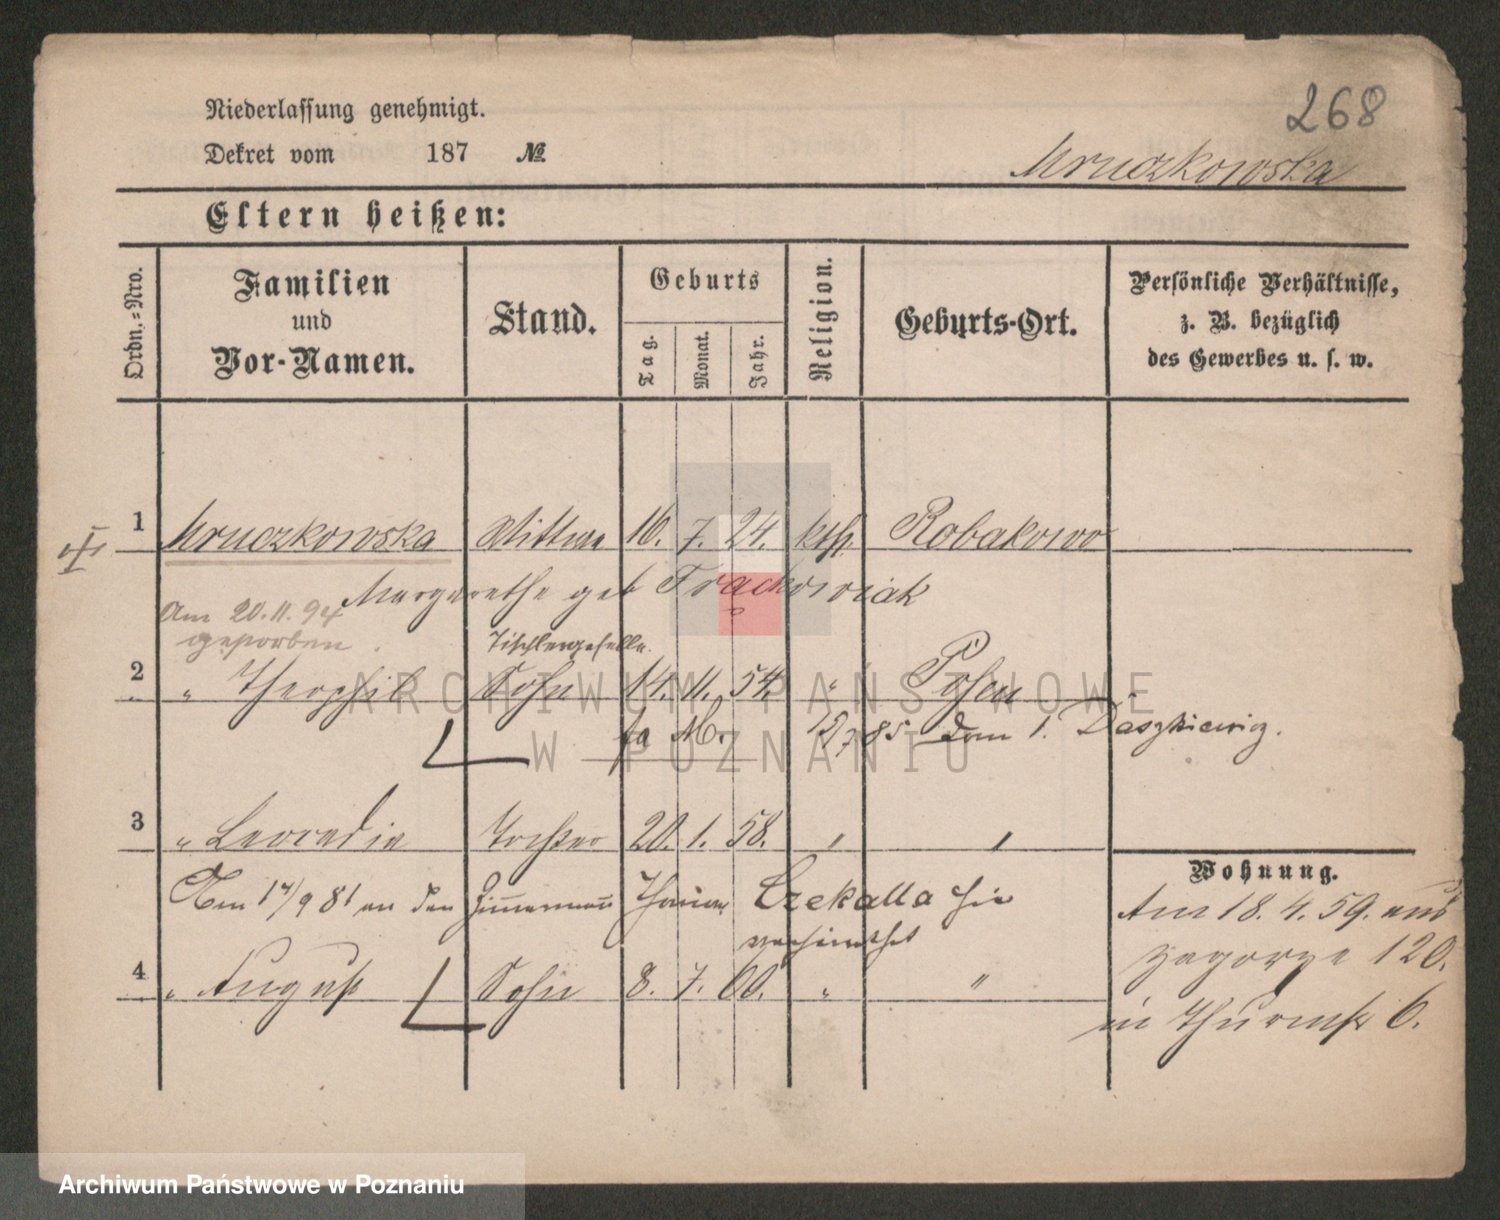 268
Niederlassung genehmigt.
Dekret vom 187 №
Mruczkowska
Eltern heißen:
Ordn.=Nro.
Familien und Vor-Namen.
Stand.
Geburts
Tag.
Monat.
Jahr.
Religion.
Geburts-Ort.
Persönliche Verhältnisse,
z. B. bezüglich
des Gewerbes u. s. w.
1 Mruczkowska Wittwe 16. 7. 24. kth. Robakowo
Margarethe geb Frąckowiak
Am 20.11.94
gestorben.
Tischlergeselle.
2 " Theophil Sohn 14. 11. 54. " Posen
fa M. 85 Dom 1. Daszkiewicz.
3 " Leocadie Tochter 20. 1. 58. " "
Wohnung.
Am 17/9 81 an den Zimmermann Czekalla hie
verheirathet
Am 18. 4. 59. aus
Zagorze 120.
4 " August Sohn 8. 7. 60. " "
in Thurmstr 6.
ARCHIWUM PAŃSTWOWE
W POZNANIU
Archiwum Państwowe w Poznaniu